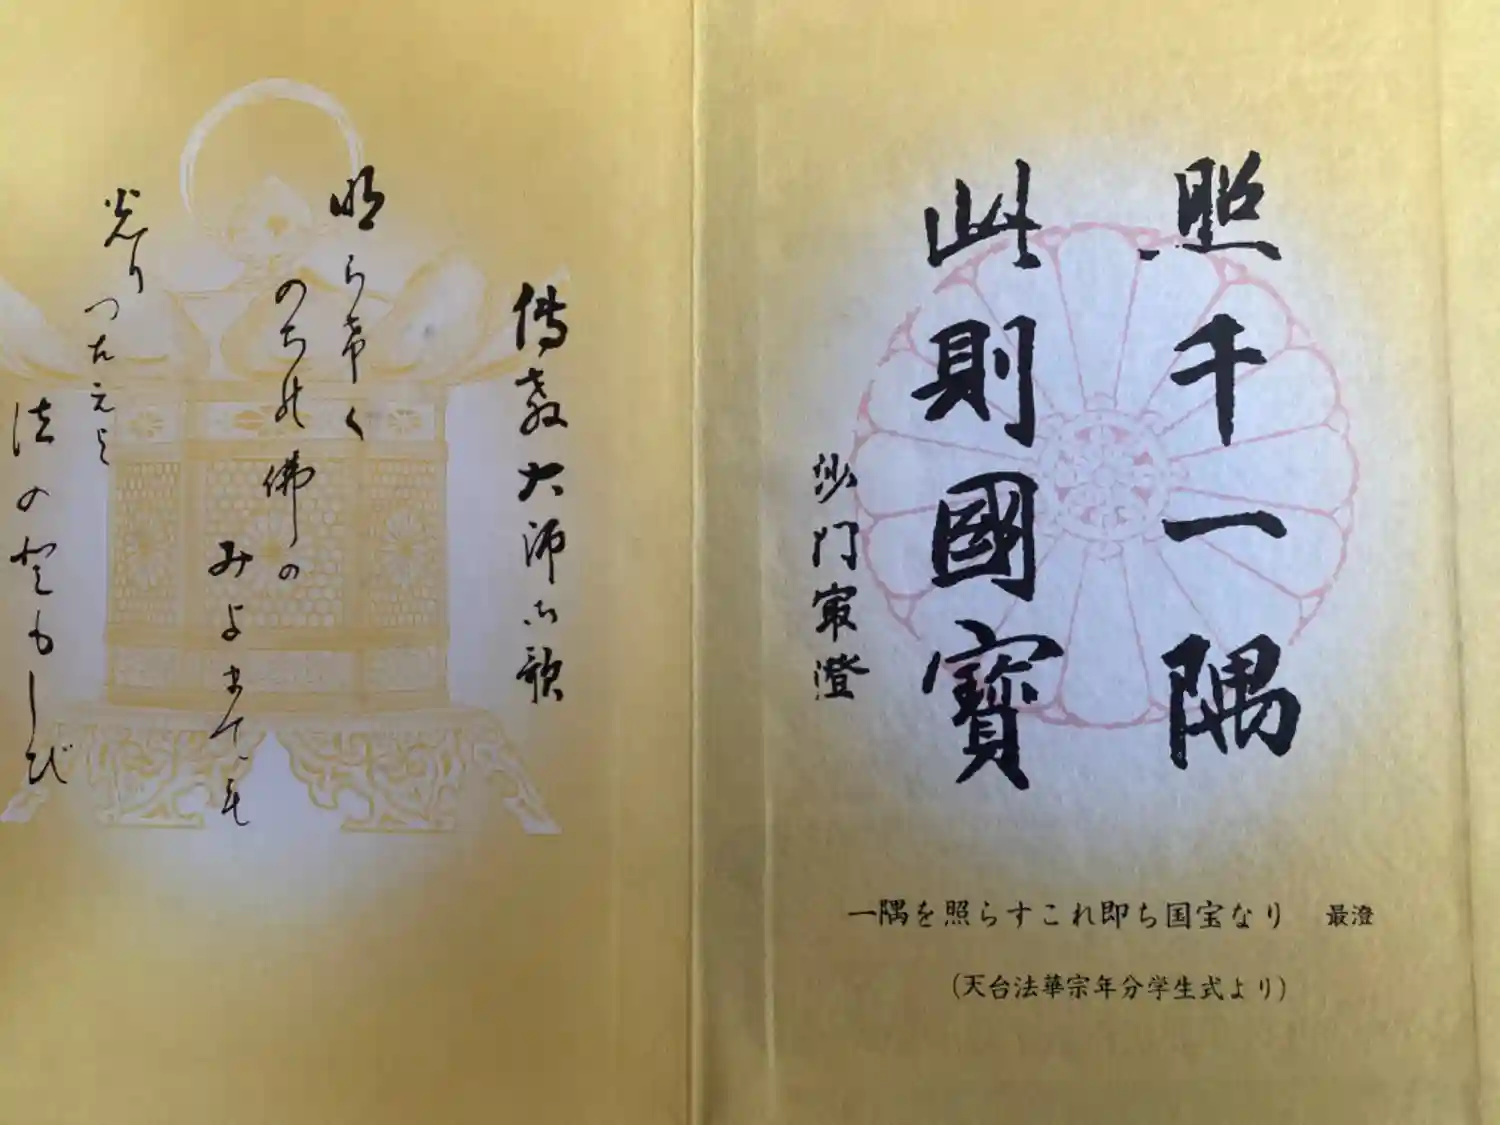 照千一隅
此則國寶
沙門冣澄
一隅を照らすこれ即ち国宝なり 最澄
(天台法華宗年分学生式より)
傳教大師御歌
明らけく
のちの佛の
みよまでも
光りつたえよ
法のともしび